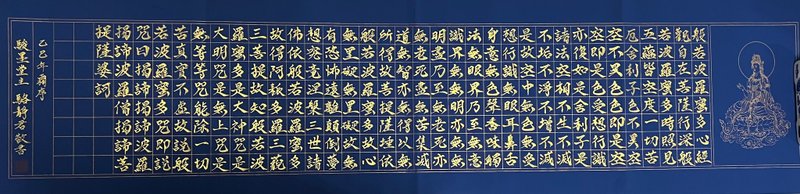 般若波羅蜜多心經
觀自在菩薩行深般
若波羅蜜多時照見
五蘊皆空度一切苦
厄舍利子色不異空
空不異色色即是空
空即是色受想行識
亦復如是舍利子是
諸法空相不生不滅
不垢不淨不增不減
是故空中無色無受
想行識無眼耳鼻舌
身意無色聲香味觸
法無眼界乃至無意
識界無無明亦無無
明盡乃至無老死亦
無老死盡無苦集滅
道無智亦無得以無
所得故菩提薩埵依
般若波羅蜜多故心
無罣礙無罣礙故無
有恐怖遠離顛倒夢
想究竟涅槃三世諸
佛依般若波羅蜜多
故得阿耨多羅三藐
三菩提故知般若波
羅蜜多是大神咒是
大明咒是無上咒是
無等等咒能除一切
苦真實不虛故說般
若波羅蜜多咒即說
咒曰揭諦揭諦波羅
揭諦波羅僧揭諦菩
提薩婆訶
乙巳年序
駿墨堂主 駱靜君敬書